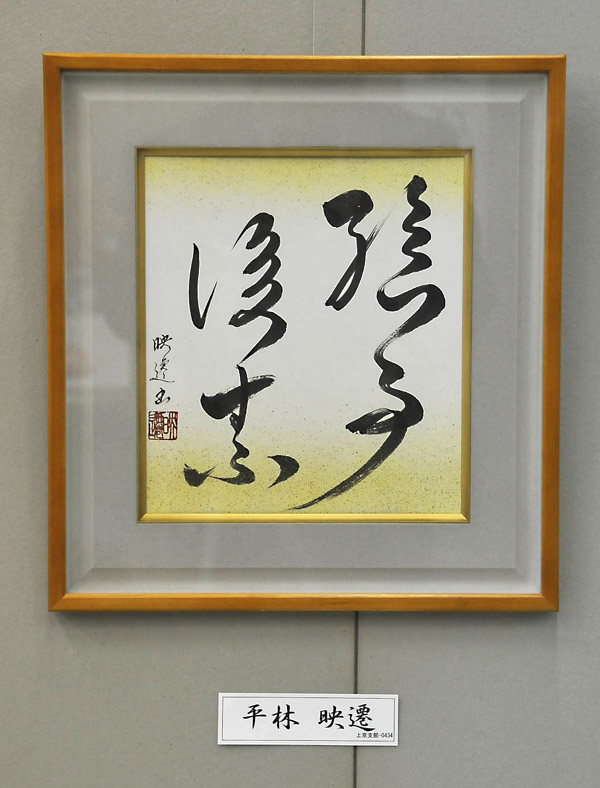 絵事
後素
映遷書
平林 映遷
上京支部-0434